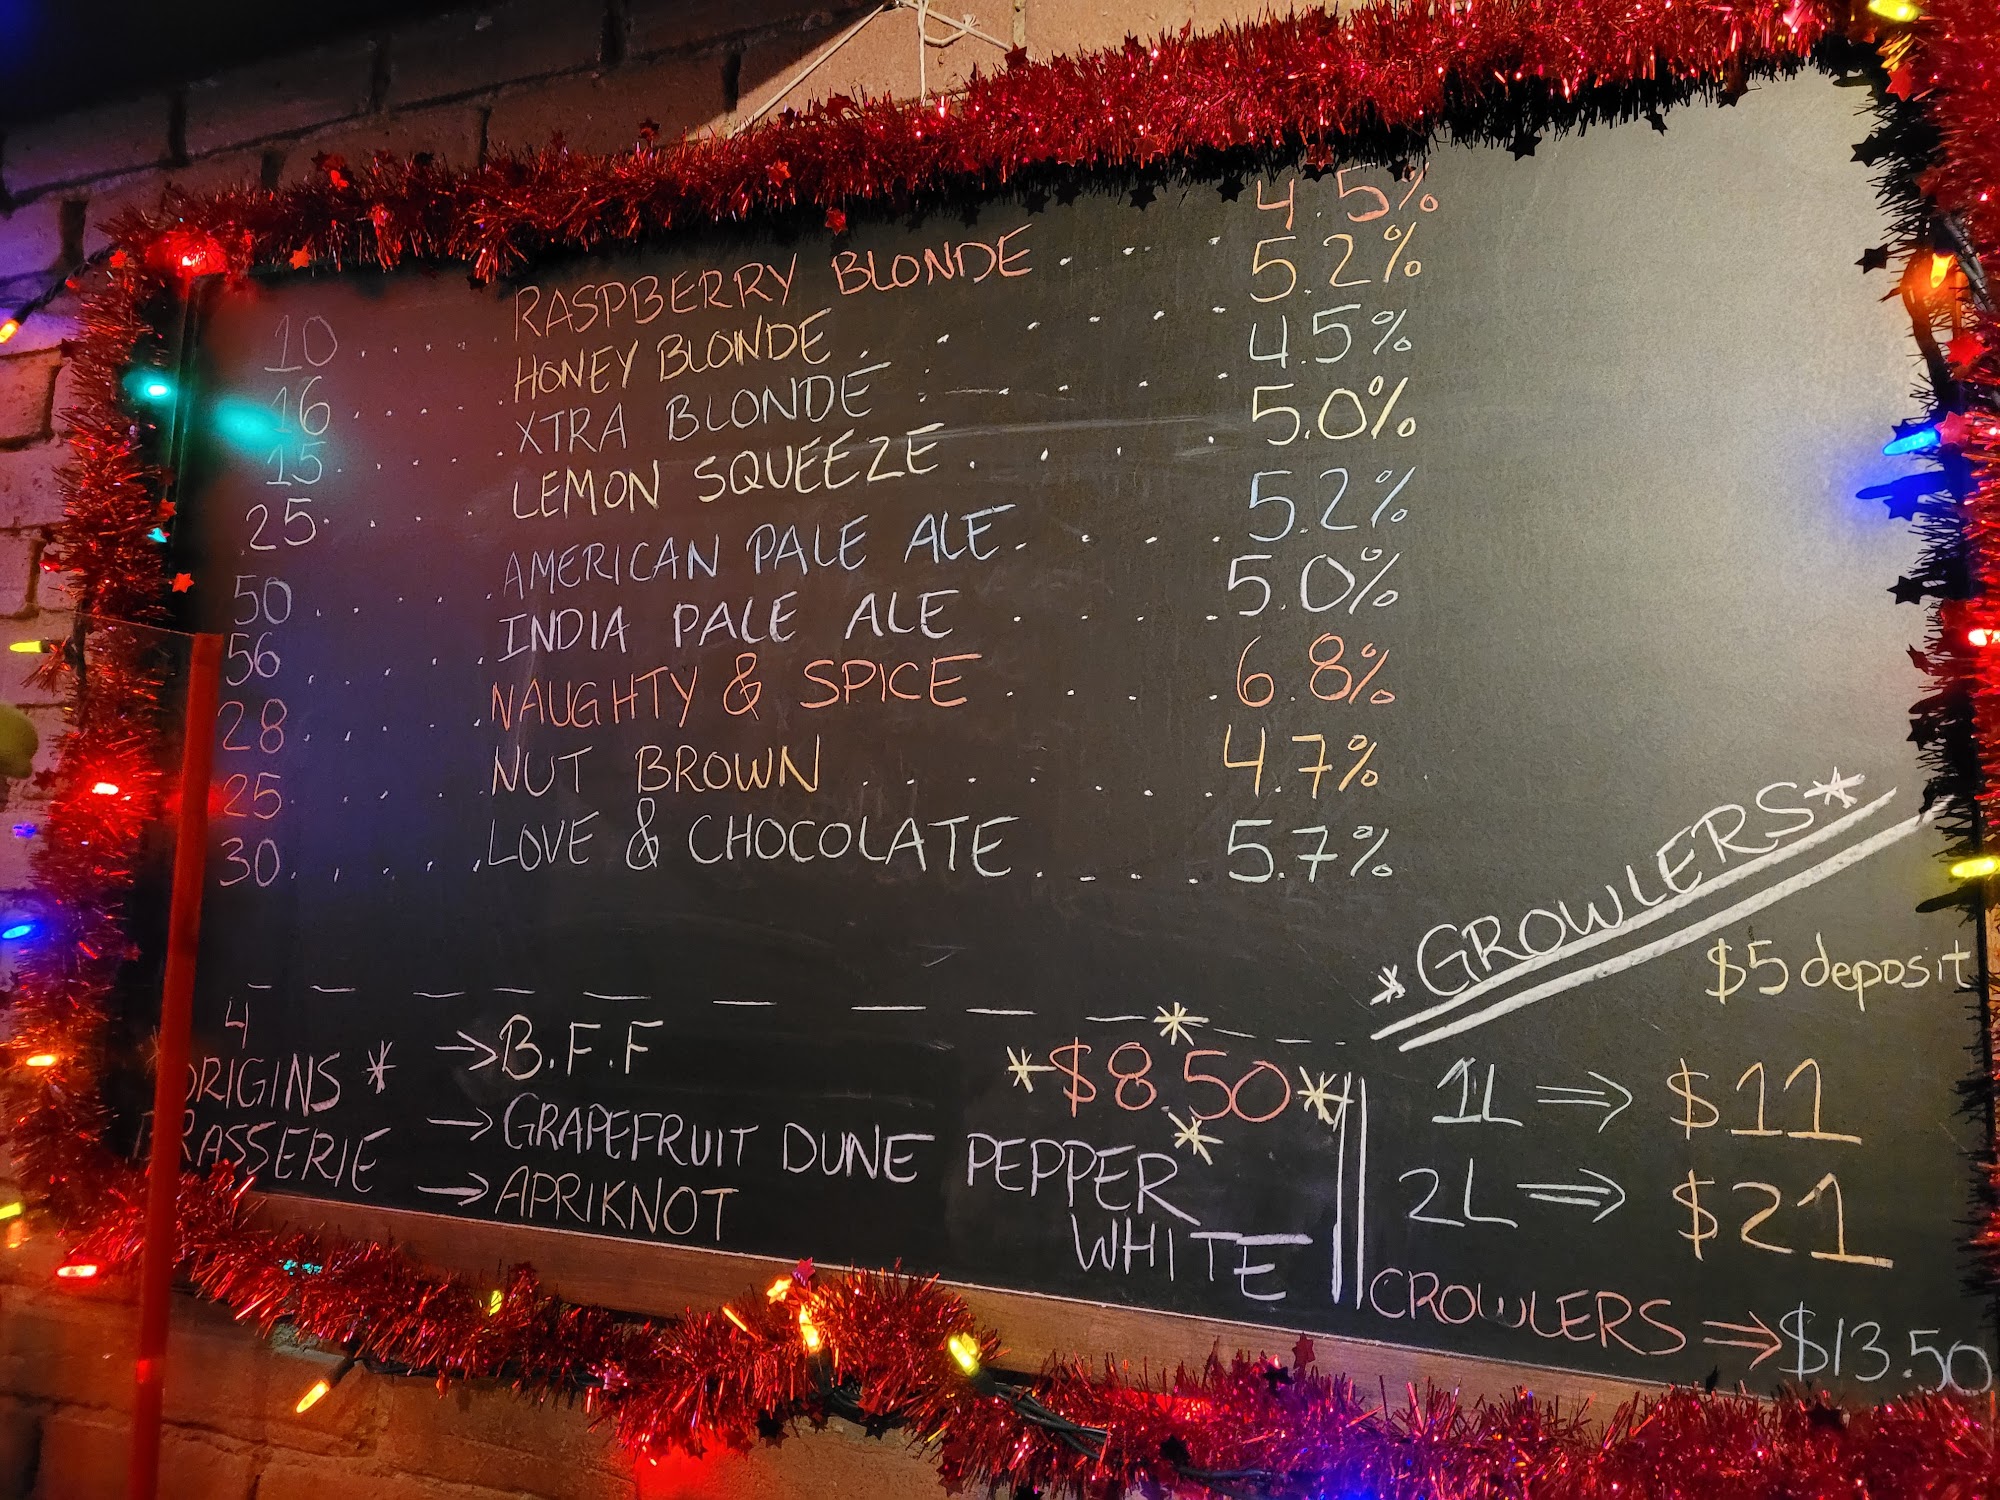 10 . . . . . RASPBERRY BLONDE . . . 4.5%
16 . . . . . HONEY BLONDE . . . . . 5.2%
15 . . . . . XTRA BLONDE . . . . . 4.5%
25 . . . . LEMON SQUEEZE . . . . 5.0%
50 . . . . . AMERICAN PALE ALE . . . . 5.2%
56 . . . . . INDIA PALE ALE . . . . 5.0%
28 . . . . . NAUGHTY & SPICE . . . . 6.8%
25 . . . . . NUT BROWN . . . . . . 4.7%
30 . . . . . LOVE & CHOCOLATE . . . . 5.7%
4
ORIGINS * → B.F.F
BRASSERIE → GRAPEFRUIT DUNE PEPPER WHITE
→ APRIKNOT
*$8.50*
*GROWLERS*
$5 deposit
1L ⇒ $11
2L ⇒ $21
CROWLERS ⇒ $13.50